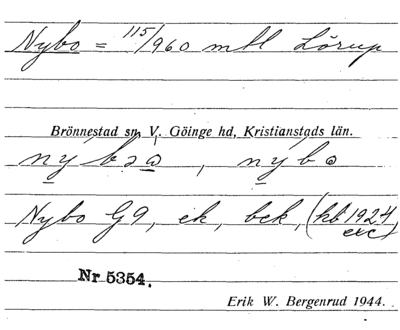 Nybo = 115/960 mtl Lörup
Brönnestad sn, V. Göinge hd, Kristianstads län.
nýbɔa, nýbɷ
Nybo G9, ek, bek, (kb 1924
etc)
Nr 5354.
Erik W. Bergenrud 1944.